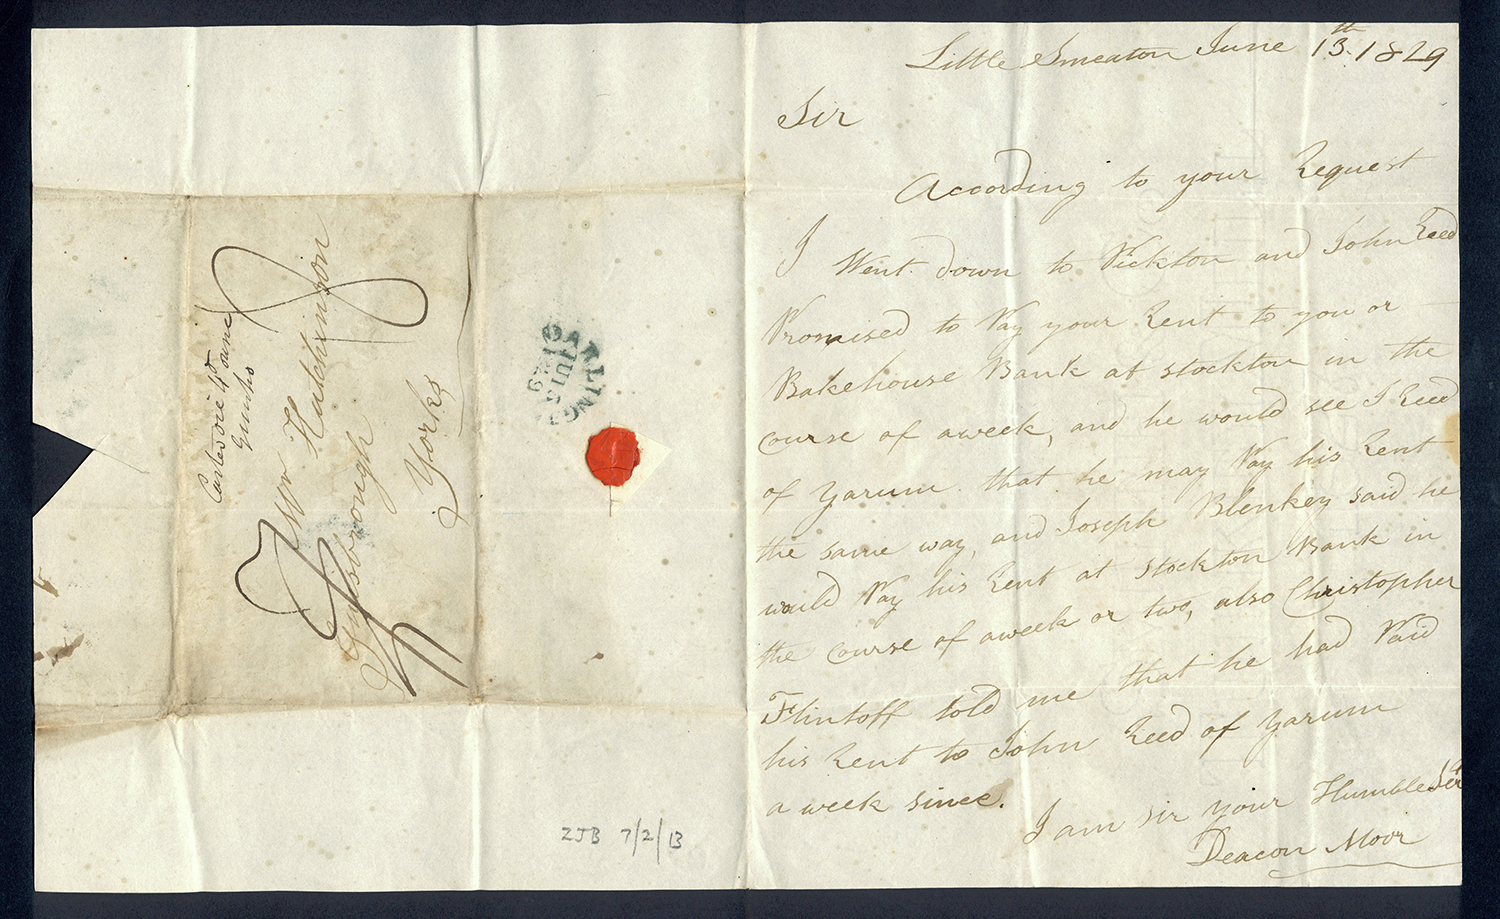 Little Smeaton June 13th. 1829
Sir
According to your Request
I Went down to Pickton and John Reed
Promised to Pay your Rent to you or
Bakehouse Bank at Stockton in the
Course of aweek, and he would see J Reed
of Yarum that he may Pay his Rent
the same way, and Joseph Blenkey said he
would Pay his Rent at Stockton Bank in
the Course of aweek or two, also Christopher
Flintoff told me that he had Paid
his Rent to John Reed of Yarum
a week since.
I am sir your Humble Sert
Deacon Moor
Mr Hutchinson
Gisborough
Yorks
DARLING
JU
ZJB 7/2/13